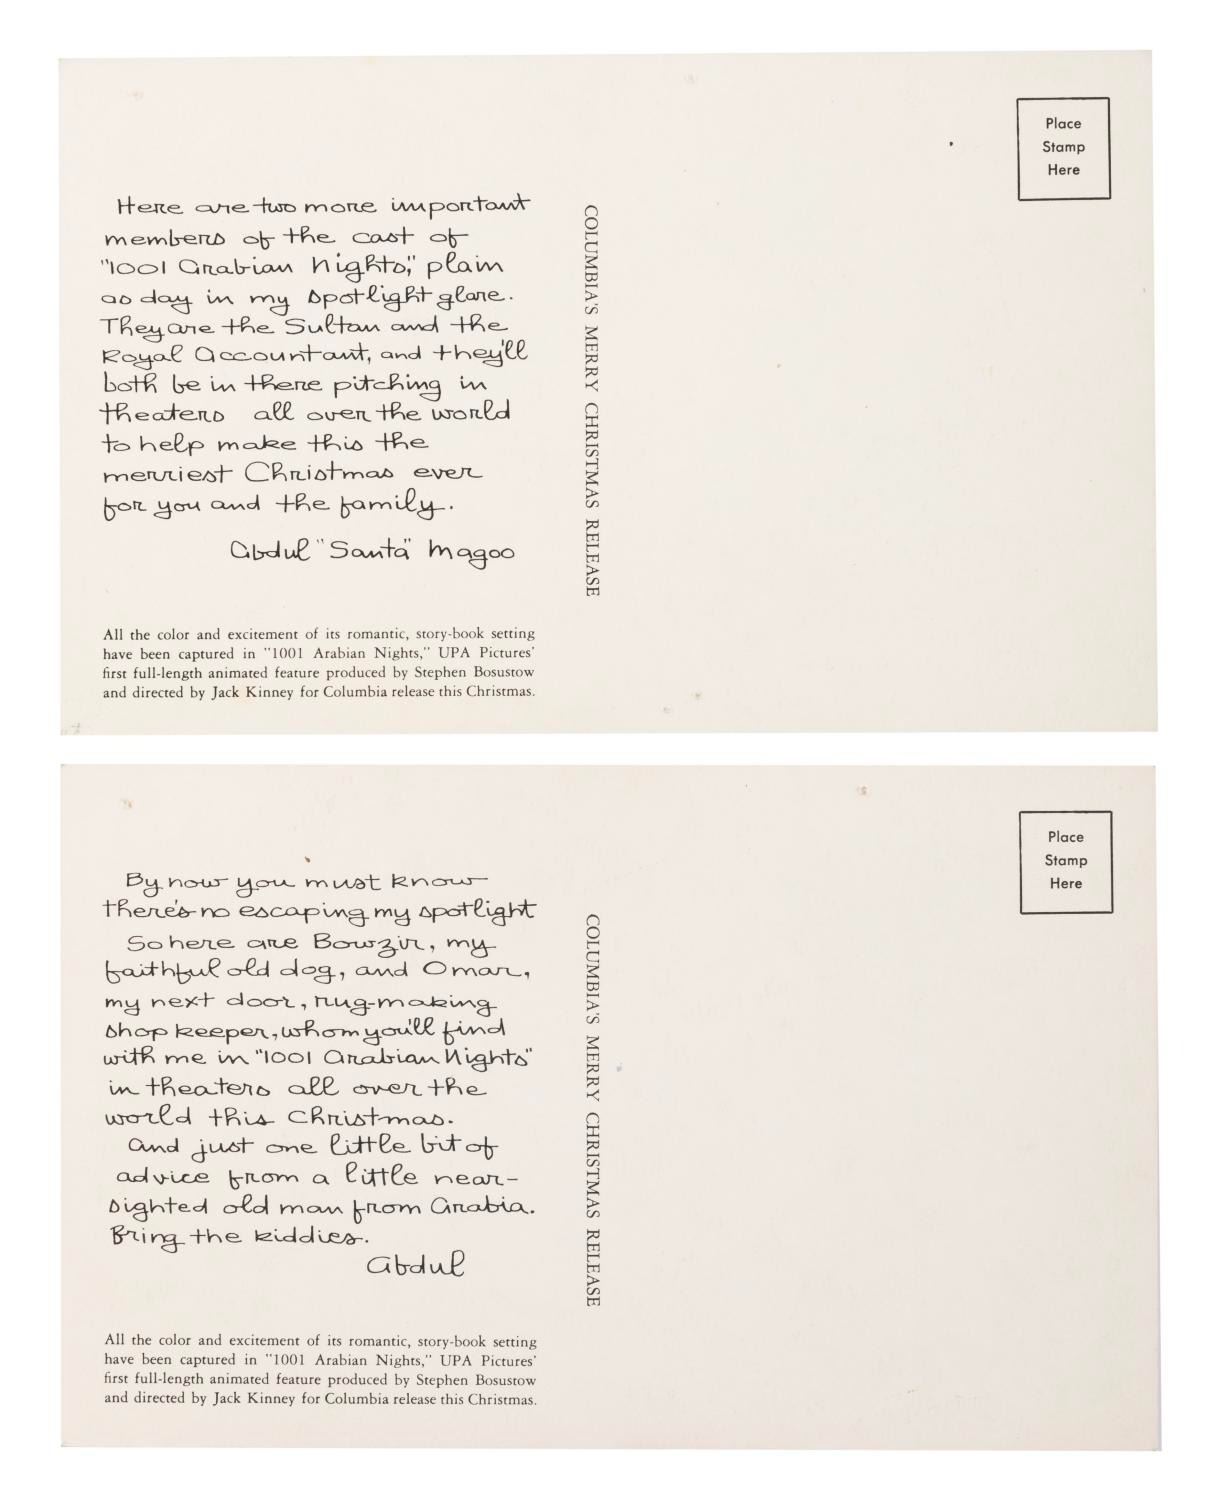 Place
Stamp
Here
Here are two more important
members of the cast of
"1001 Arabian Nights," plain
as day in my spotlight glare.
They are the Sultan and the
Royal Accountant, and they'll
both be in there pitching in
theaters all over the world
to help make this the
merriest Christmas ever
for you and the family.
Abdul "Santa" Magoo
All the color and excitement of its romantic, story-book setting
have been captured in "1001 Arabian Nights," UPA Pictures'
first full-length animated feature produced by Stephen Bosustow
and directed by Jack Kinney for Columbia release this Christmas.
COLUMBIA'S MERRY CHRISTMAS RELEASE
Place
Stamp
Here
By now you must know
there's no escaping my spotlight
So here are Bowzir, my
faithful old dog, and Omar,
my next door, rug-making
shop keeper, whom you'll find
with me in "1001 Arabian Nights"
in theaters all over the
world this Christmas.
And just one little bit of
advice from a little near-
sighted old man from Arabia.
Bring the kiddies.
Abdul
All the color and excitement of its romantic, story-book setting
have been captured in "1001 Arabian Nights," UPA Pictures'
first full-length animated feature produced by Stephen Bosustow
and directed by Jack Kinney for Columbia release this Christmas.
COLUMBIA'S MERRY CHRISTMAS RELEASE